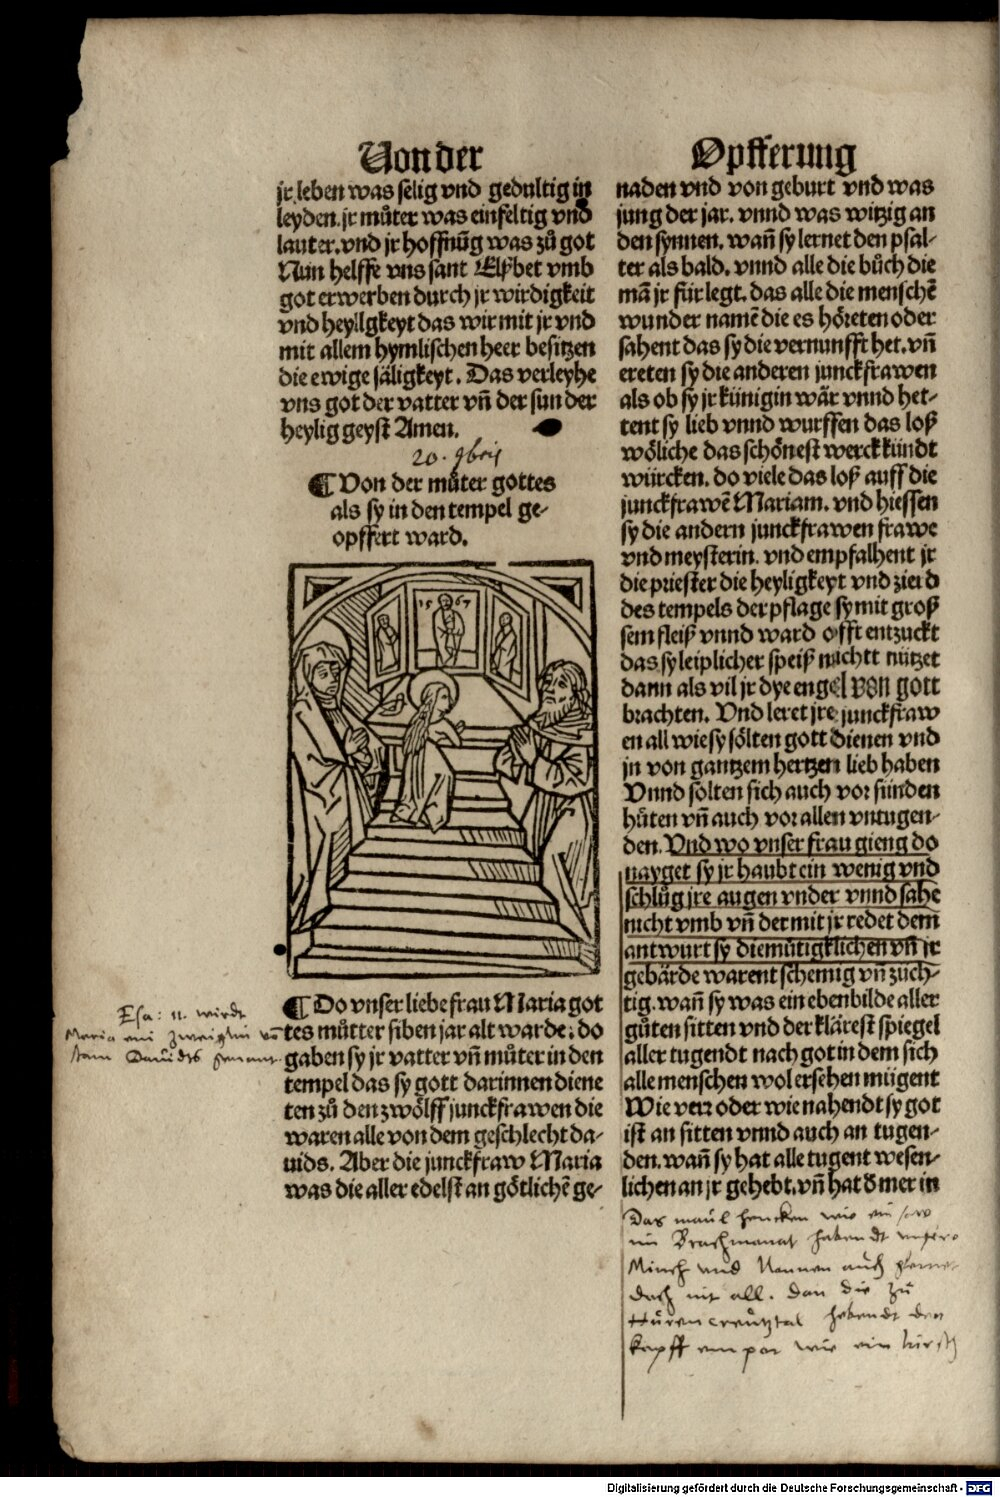 Von der
jr leben was selig vnd gedultig in
leyden. jr muͤter was einfeltig vnd
lauter. vnd jr hoffnūg was zuͦ got
Nun helffe vns sant Elsbet vmb
got erwerben durch jr wirdigkeit
vnd heyligkeyt das wir mit jr vnd
mit allem hymlischen heer besitzen
die ewige säligkeyt. Das verleyhe
vns got der vatter vn̄ der sun der
heylig geyst Amen.
20. 9bris
¶ Von der muͦter gottes
als sy in den tempel ge-
opffert ward.
1567
¶ Do vnser liebe frau Maria got
tes muͦtter siben jar alt warde. do
gaben sy jr vatter vn̄ muͦter in den
tempel das sy gott darinnen diene
ten zuͦ den zwoͤlff junckfrawen die
waren alle von dem geschlecht da-
uids. Aber die junckfraw Maria
was die aller edelst an goͤtlichē ge-
Esa: 11. wirdt
Maria ein zweiglin vō
stam Dauidts genant.
Opfferung
naden vnd von geburt vnd was
jung der jar. vnnd was witzig an
den synnen. wan̄ sy lernet den psal-
ter als bald. vnnd alle die buͤch die
mā jr für legt. das alle die menschē
wunder namē die es hoͤreten oder
sahent das sy die vernunfft het. vn̄
ereten sy die anderen junckfrawen
als ob sy jr künigin wär vnnd het-
tent sy lieb vnnd wurffen das loß
woͤliche das schoͤnest werck kündt
würcken. do viele das loß auff die
junckfrawē Mariam. vnd hiessen
sy die andern junckfrawen frawe
vnd meysterin. vnd empfalhent jr
die priester die heyligkeyt vnd zierd
des tempels der pflage sy mit groß
sem fleiß vnnd ward offt entzuckt
das sy leiplicher speiß nichtt nützet
dann als vil jr dye engel von gott
brachten. Vnd leret jre junckfraw
en all wie sy soͤlten gott dienen vnd
jn von gantzem hertzen lieb haben
Vnnd solten sich auch vor sünden
huͤten vn̄ auch vor allen vntugen-
den. Vnd wo vnser frau gieng do
nayget sy jr haubt ein wenig vnd
schluͦg jre augen vnder vnnd sahe
nicht vmb vn̄ der mit jr redet dem
antwurt sy diemuͤtigklichen vn̄ jr
gebärde warent schemig vn̄ züch-
tig. wan̄ sy was ein ebenbilde aller
guͤten sitten vnd der klärest spiegel
aller tugendt nach got in dem sich
alle menschen wol ersehen mügent
Wie verr oder wie nahendt sy got
ist an sitten vnnd auch an tugen-
den. wan̄ sy hat alle tugent wesen-
lichen an jr gehebt. vn̄ hat d mer in
Das maul hencken wie ein saw
im Brachmonat habendt vnsere
Münch vnd Nonnen auch
doch nit all. dan die zuͦ
Hürencreütztal hebendt den
kopff empor wie ein hirsch
Digitalisierung gefördert durch die Deutsche Forschungsgemeinschaft - DFG